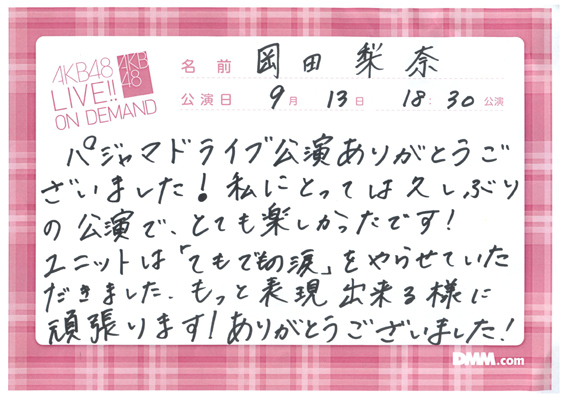 AKB48
LIVE!!
ON DEMAND
AKB
48
名前 岡田 梨奈
公演日 9月 13日 18:30公演
パジャマドライブ公演ありがとうご
ざいました!私にとっては久しぶり
の公演で、とても楽しかったです!
ユニットは「てもでもの涙」をやらせていた
だきました、もっと表現出来る様に
頑張ります!ありがとうございました!
DMM.com